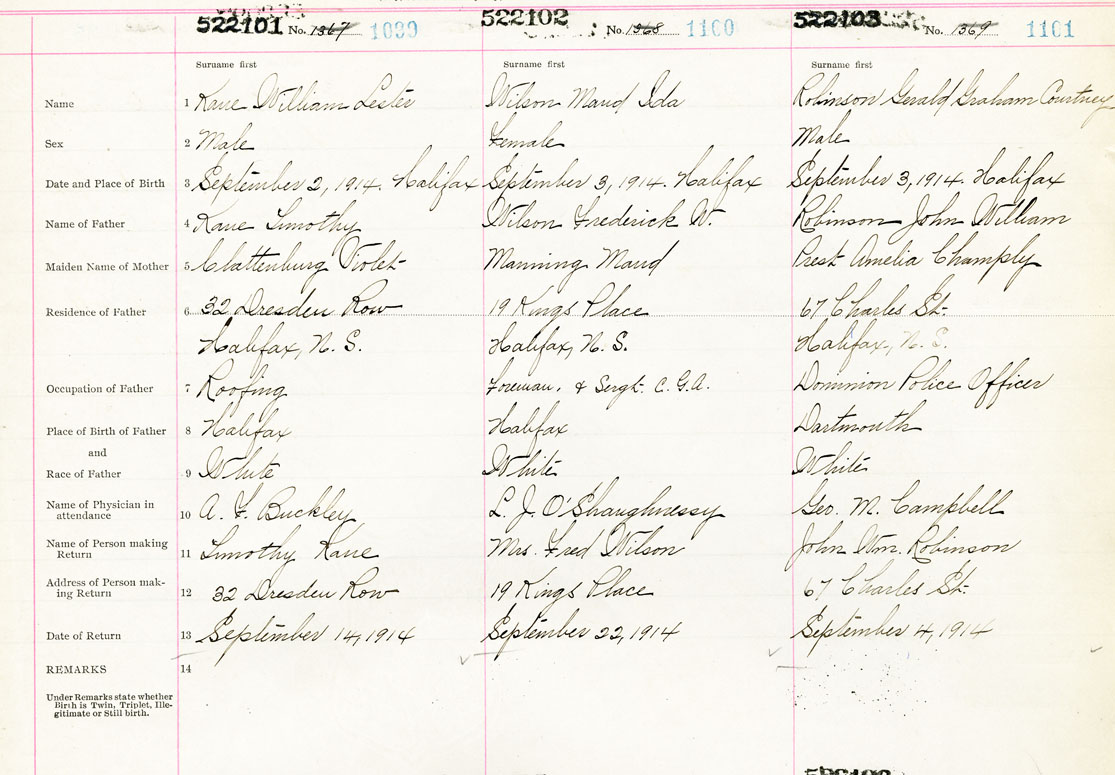 522101 No. 1367 1099 522102 No. 1368 1100 522103 No. 1369 1101
Surname first Surname first Surname first
Name 1 Kane William Lester Wilson Maud Ida Robinson Gerald Graham Courtney
Sex 2 Male Female Male
Date and Place of Birth 3 September 2, 1914. Halifax September 3, 1914. Halifax September 3, 1914. Halifax
Name of Father 4 Kane Timothy Wilson Frederick W. Robinson John William
Maiden Name of Mother 5 Clattenburg Violet Manning Maud Prest Amelia Champly
Residence of Father 6 32 Dresden Row 19 Kings Place 67 Charles St.
Halifax, N. S. Halifax, N. S. Halifax, N. S.
Occupation of Father 7 Roofing Foreman. & Sergt. C. G. A. Dominion Police Officer
Place of Birth of Father 8 Halifax Halifax Dartmouth
and
Race of Father 9 White White White
Name of Physician in
attendance 10 A. F. Buckley L. J. O'Shaughnessy Geo. M. Campbell
Name of Person making
Return 11 Timothy Kane Mrs. Fred Wilson John Wm. Robinson
Address of Person mak-
ing Return 12 32 Dresden Row 19 Kings Place 67 Charles St.
Date of Return 13 September 14, 1914 September 22, 1914 September 4, 1914
REMARKS 14
Under Remarks state whether
Birth is Twin, Triplet, Ille-
gitimate or Still birth.